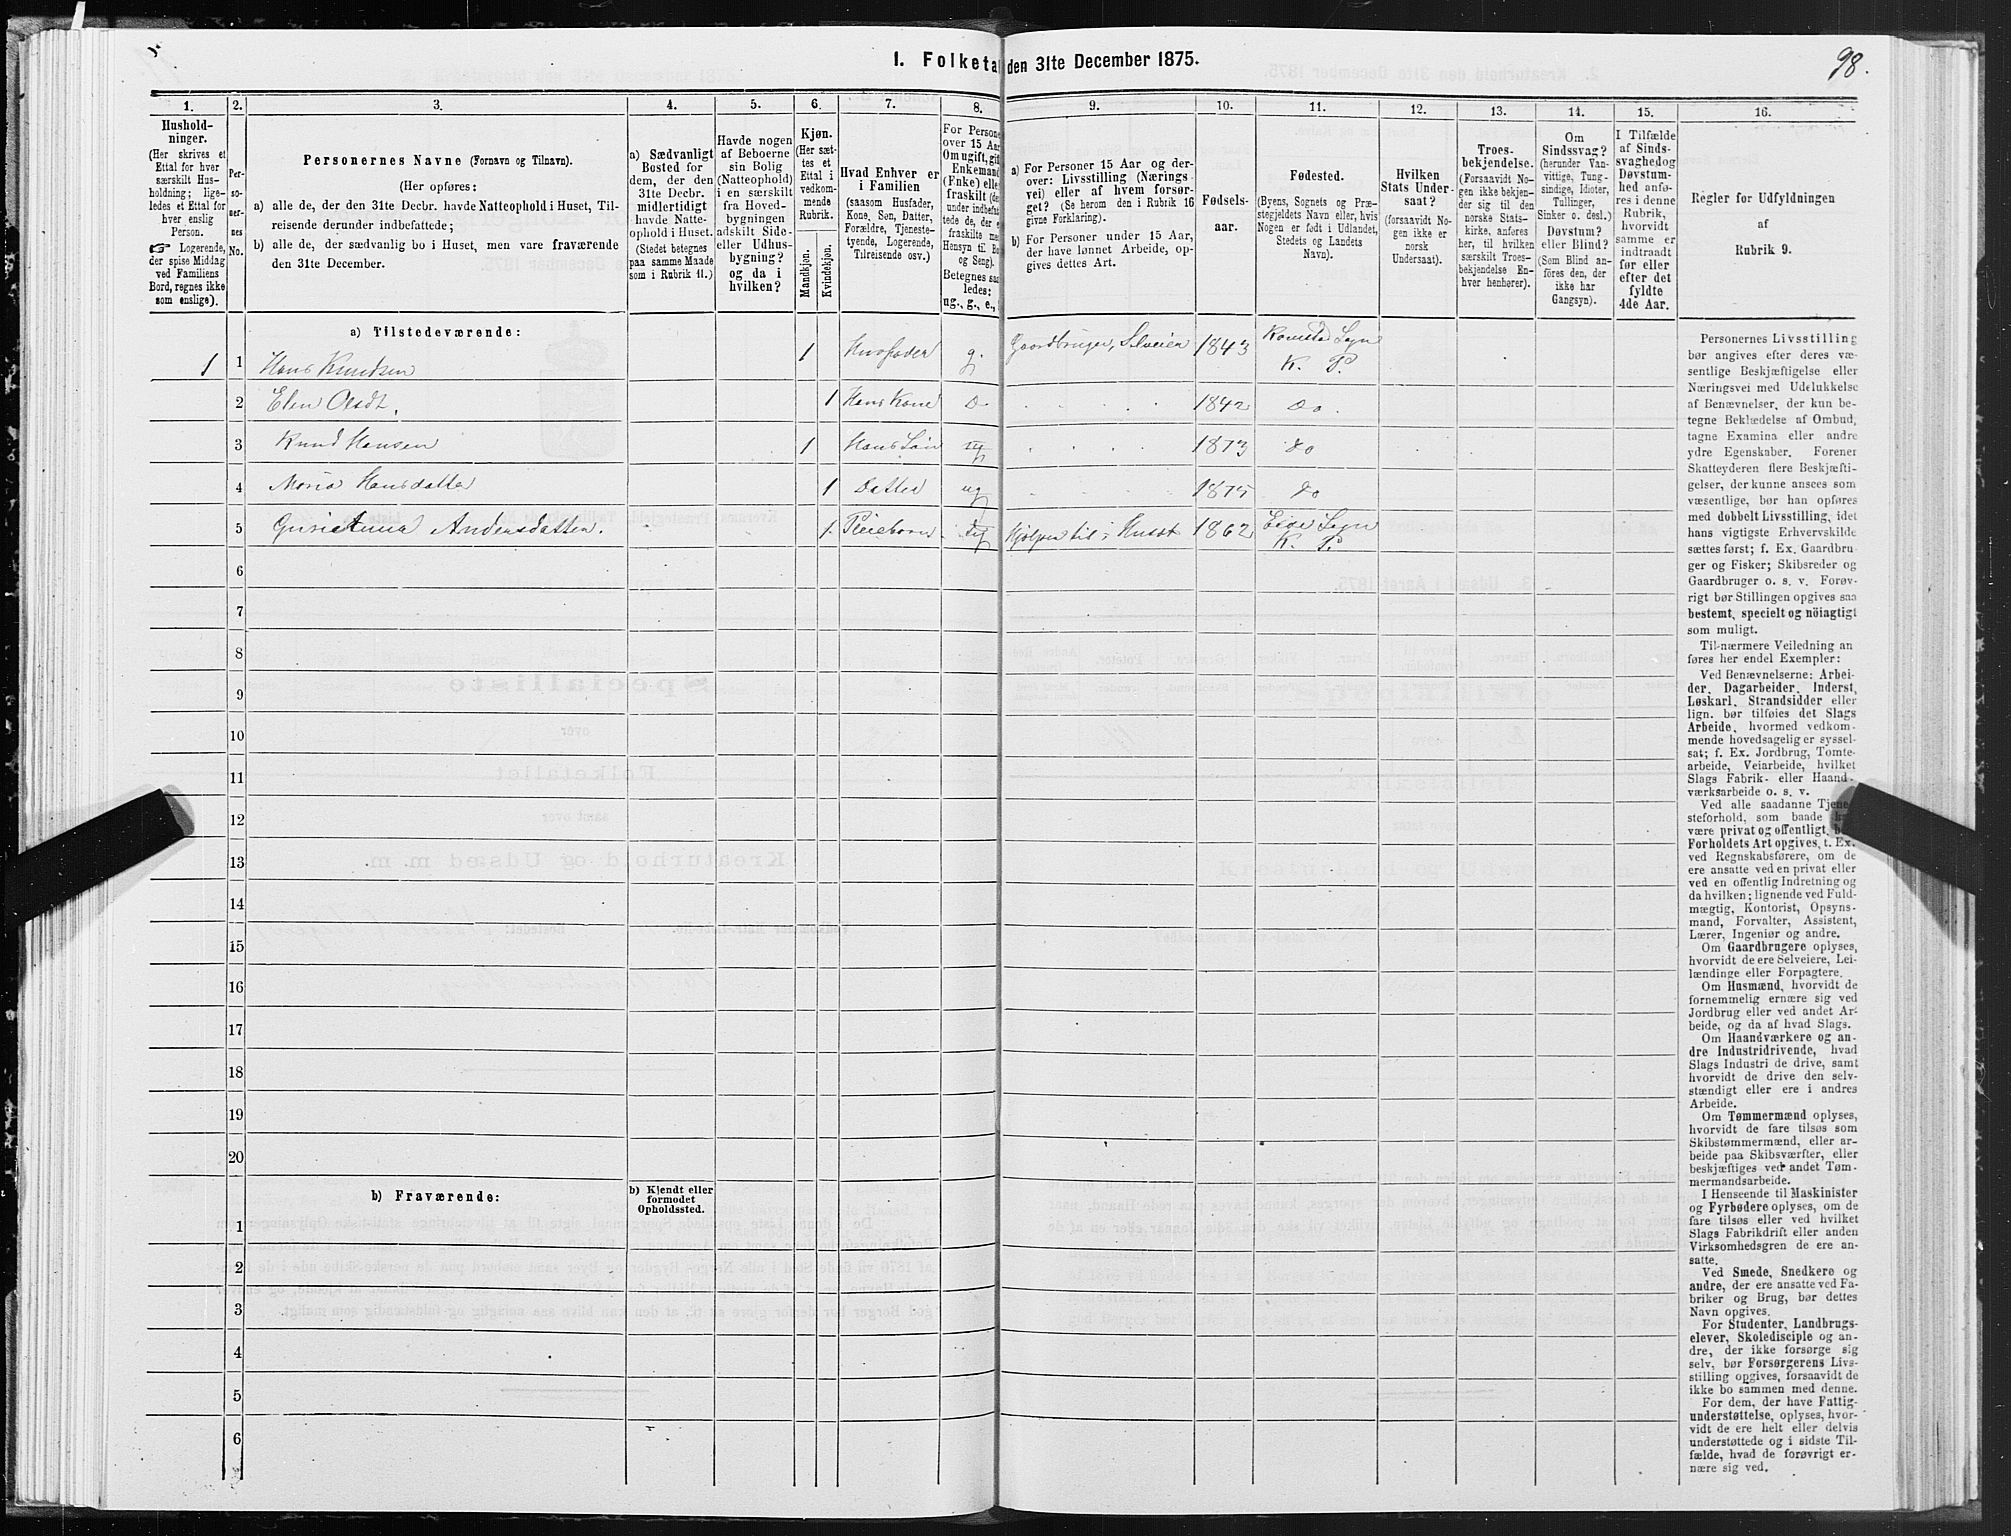 1. Folketal den 31te December 1875.
98.
1.
2.
3.
4.
5.
6.
7.
8.
9.
10.
11.
12.
13.
14.
15.
16.
Hushold-
ninger.
(Her skrives et
Ettal for hver
særskilt Hus-
holdning; lige-
ledes et Ettal for
hver enslig
Person.
☞ Logerende,
der spise Middag
ved Familiens
Bord, regnes ikke
som enslige).
Per-
so-
ner-
nes
No.
Personernes Navne (Fornavn og Tilnavn).
(Her opføres:
a) alle de, der den 31te Decbr. havde Natteophold i Huset, Til-
reisende derunder indbefattede;
b) alle de, der sædvanlig bo i Huset, men vare fraværende
den 31te December.
a) Sædvanligt
Bosted for
dem, der den
31te Decbr.
midlertidigt
havde Natte-
ophold i Huset.
(Stedet betegnes
paa samme Maade
som i Rubrik 11.)
Havde nogen
af Beboerne
sin Bolig
(Natteophold)
i en særskilt
fra Hoved-
bygningen
adskilt Side-
eller Udhus-
bygning?
og da i
hvilken?
Kjøn.
(Her sæt-
tes et
Ettal i
vedkom-
mende
Rubrik.
Mandkjøn.
Kvindekjøn.
Hvad Enhver er
i Familien
(saasom Husfader,
Kone, Søn, Datter,
Forældre, Tjeneste-
tyende, Logerende,
Tilreisende osv.)
For Persone
over 15 Aar
Om ugift, gift
Enkemand
(Enke) elle
fraskilt (der
under indbefat
tede de, der e
fraskilte med
Hensyn til Bo
og Seng).
Betegnes saa
ledes:
ug., g., e.,
a) For Personer 15 Aar og der-
over: Livsstilling (Nærings
vei) eller af hvem forsør-
get? (Se herom den i Rubrik 16
givne Forklaring).
b) For Personer under 15 Aar,
der have lønnet Arbeide, op-
gives dettes Art.
Fødsels-
aar.
Fødested.
(Byens, Sognets og Præ-
stegjeldets Navn eller, hvis
Nogen er født i Udlandet,
Stedets og Landets
Navn).
Hvilken
Stats Under-
saat?
(forsaavidt No-
gen ikke er
norsk
Undersaat).
Troes-
bekjendelse.
(Forsaavidt No-
gen ikke bekjen-
der sig til den
norske Stats-
kirke, anføres
her, til hvilken
særskilt Troes-
bekjendelse En-
hver henhører).
Om
Sindssvag?
(herunder Van-
vittige, Tung-
sindige, Idioter,
Tullinger,
Sinker o. desl.)
Døvstum?
eller Blind?
(Som Blind an-
føres den, der
ikke har
Gangsyn).
I Tilfælde
af Sinds-
svaghedog
Døvstum-
hed anfø-
res i denne
Rubrik,
hvorvidt
samme er
indtraadt
før eller
efter det
fyldte
4de Aar.
Regler for Udfyldningen
af
Rubrik 9.
a) Tilstedeværende:
1 1 Hans Knudsen 1 Husfader g. Gaardbruger, Selveier 1843 Sogn
K. P.
2 Elen Olsdt. 1 Hans Kone 1842 Do.
3 Knud Hansen 1 Hans Søn ug 1873 do
4 Maria Hansdatter 1 Datter ug 1875 do
5 Andersdatter. 1 Pleiebarn ug Hjelper til i Huset 1862 Sogn
K. P.
6
7
8
9
10
11
12
13
14
15
16
17
18
19
20
b) Fraværende:
b) Kjendt eller
formodet
Opholdssted.
1
2
3
4
5
6
Personernes Livsstilling
bør angives efter deres væ-
sentlige Beskjæftigelse eller
Næringsvei med Udelukkelse
af Benævnelser, der kun be-
tegne Beklædelse af Ombud,
tagne Examina eller andre
ydre Egenskaber. Forener
Skatteyderen flere Beskjæfti-
gelser, der kunne ansees som
væsentlige, bør han opføres
med dobbelt Livsstilling, idet
hans vigtigste Erhvervskilde
sættes først; f. Ex. Gaardbru-
ger og Fisker; Skibsreder og
Gaardbruger o. s. v. Forøv-
rigt bør Stillingen opgives saa
bestemt, specielt og nöiagtigt
som muligt.
Til nærmere Veiledning an
føres her endel Exempler:
Ved Benævnelserne: Arbei-
der, Dagarbeider, Inderst,
Løskarl, Strandsidder eller
lign. bør tilføies det Slags
Arbeide, hvormed vedkom-
mende hovedsagelig er syssel-
sat; f. Ex. Jordbrug, Tomte-
arbeide, Veiarbeide, hvilket
Slags Fabrik- eller Haand-
værksarbeide o. s. v.
Ved alle saadanne Tjene-
steforhold, som baade
være privat og offentligt,
Forholdets Art opgives, t. Ex.
ved Regnskabsførere, om de
ere ansatte ved en privat eller
ved en offentlig Indretning og
da hvilken; lignende ved Fuld-
mægtig, Kontorist, Opsyns-
mand, Forvalter, Assistent,
Lærer, Ingeniør og andre.
Om Gaardbrugere oplyses,
hvorvidt de ere Selveiere, Lei-
lændinge eller Forpagtere.
Om Husmænd, hvorvidt de
fornemmelig ernære sig ved
Jordbrug eller ved andet Ar-
beide, og da af hvad Slags.
Om Haandværkere og an-
dre Industridrivende, hvad
Slags Industri de drive, samt
hvorvidt de drive den selv-
stændigt eller ere i andres
Arbeide.
Om Tømmermænd oplyses,
hvorvidt de fare tilsøs som
Skibstømmermænd, eller ar-
beide paa Skibsværfter, eller
beskjæftiges ved andet Tøm-
mermandsarbeide.
I Henseende til Maskinister
og Fyrbødere oplyses, om de
fare tilsøs eller ved hvilket
Slags Fabrikdrift eller anden
Virksomhedsgren de ere an-
satte.
Ved Smede, Snedkere og
andre, der ere ansatte ved Fa-
briker og Brug, bør dettes
Navn opgives.
For Studenter, Landbrugs-
elever, Skoledisciple og an-
dre, der ikke forsørge sig
selv, bør Forsørgerens Livs-
stilling opgives, forsaavidt de
ikke bo sammen med denne.
For dem, der have Fattig-
understøttelse, oplyses, hvor-
vidt de ere helt eller delvis
understøttede og i sidste Til-
fælde, hvad de forøvrigt er-
nære sig ved.